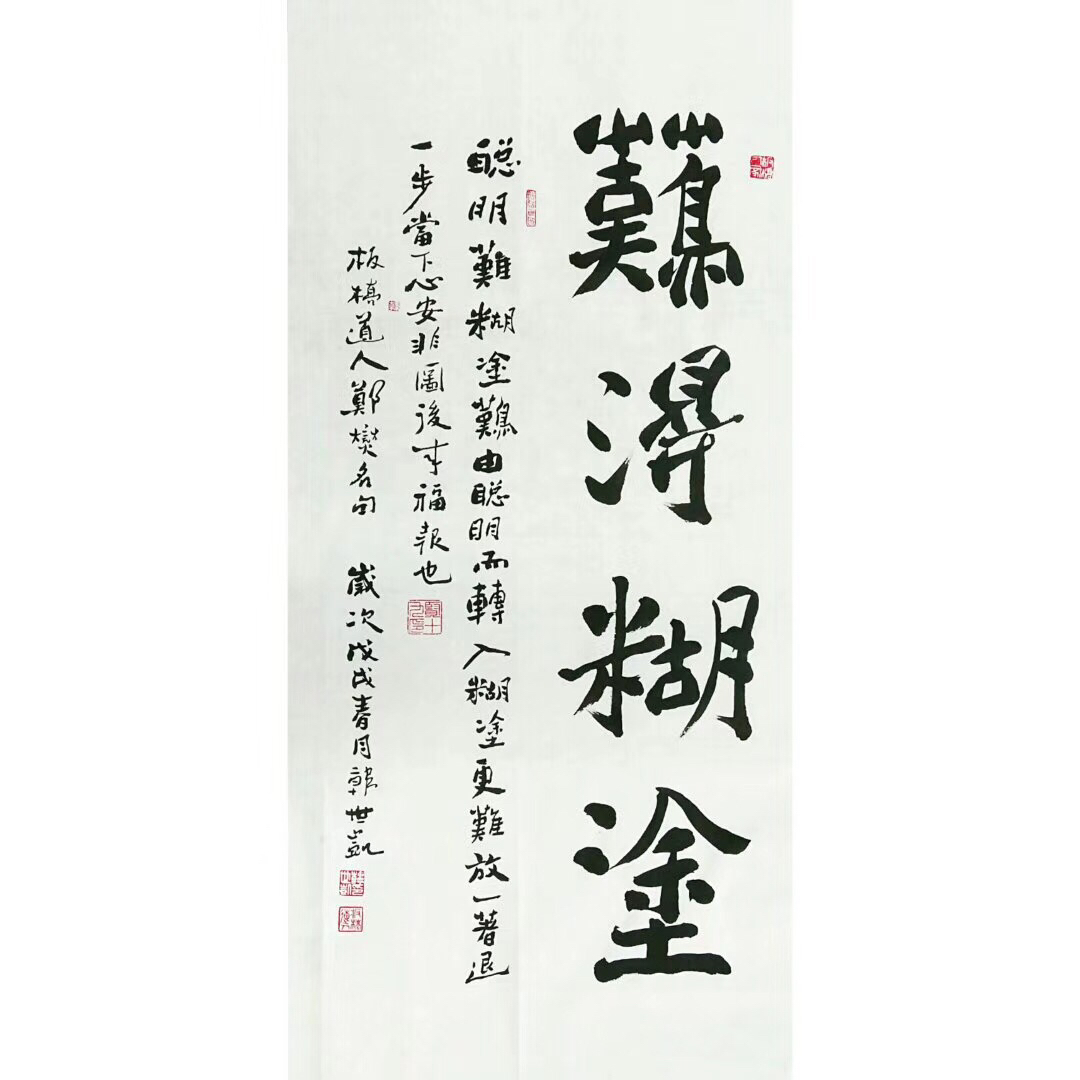 難得糊塗
聰明難糊塗難由聰明而轉入糊塗更難放一著退
一步當下心安非圖後來福報也
板橋道人鄭燮名句 歲次戊戌春月韓世凱